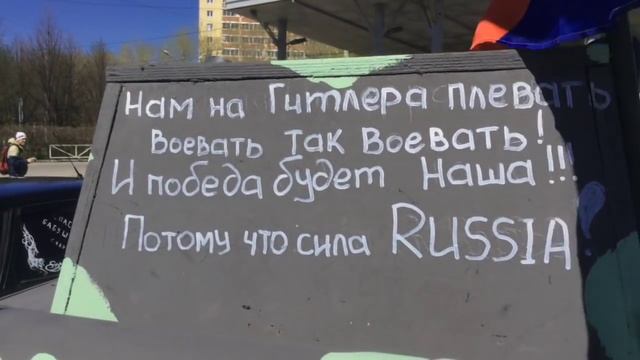 Нам на Гитлера плевать
Воевать так воевать!
И победа будет Наша!!!
Потому что сила RUSSIA